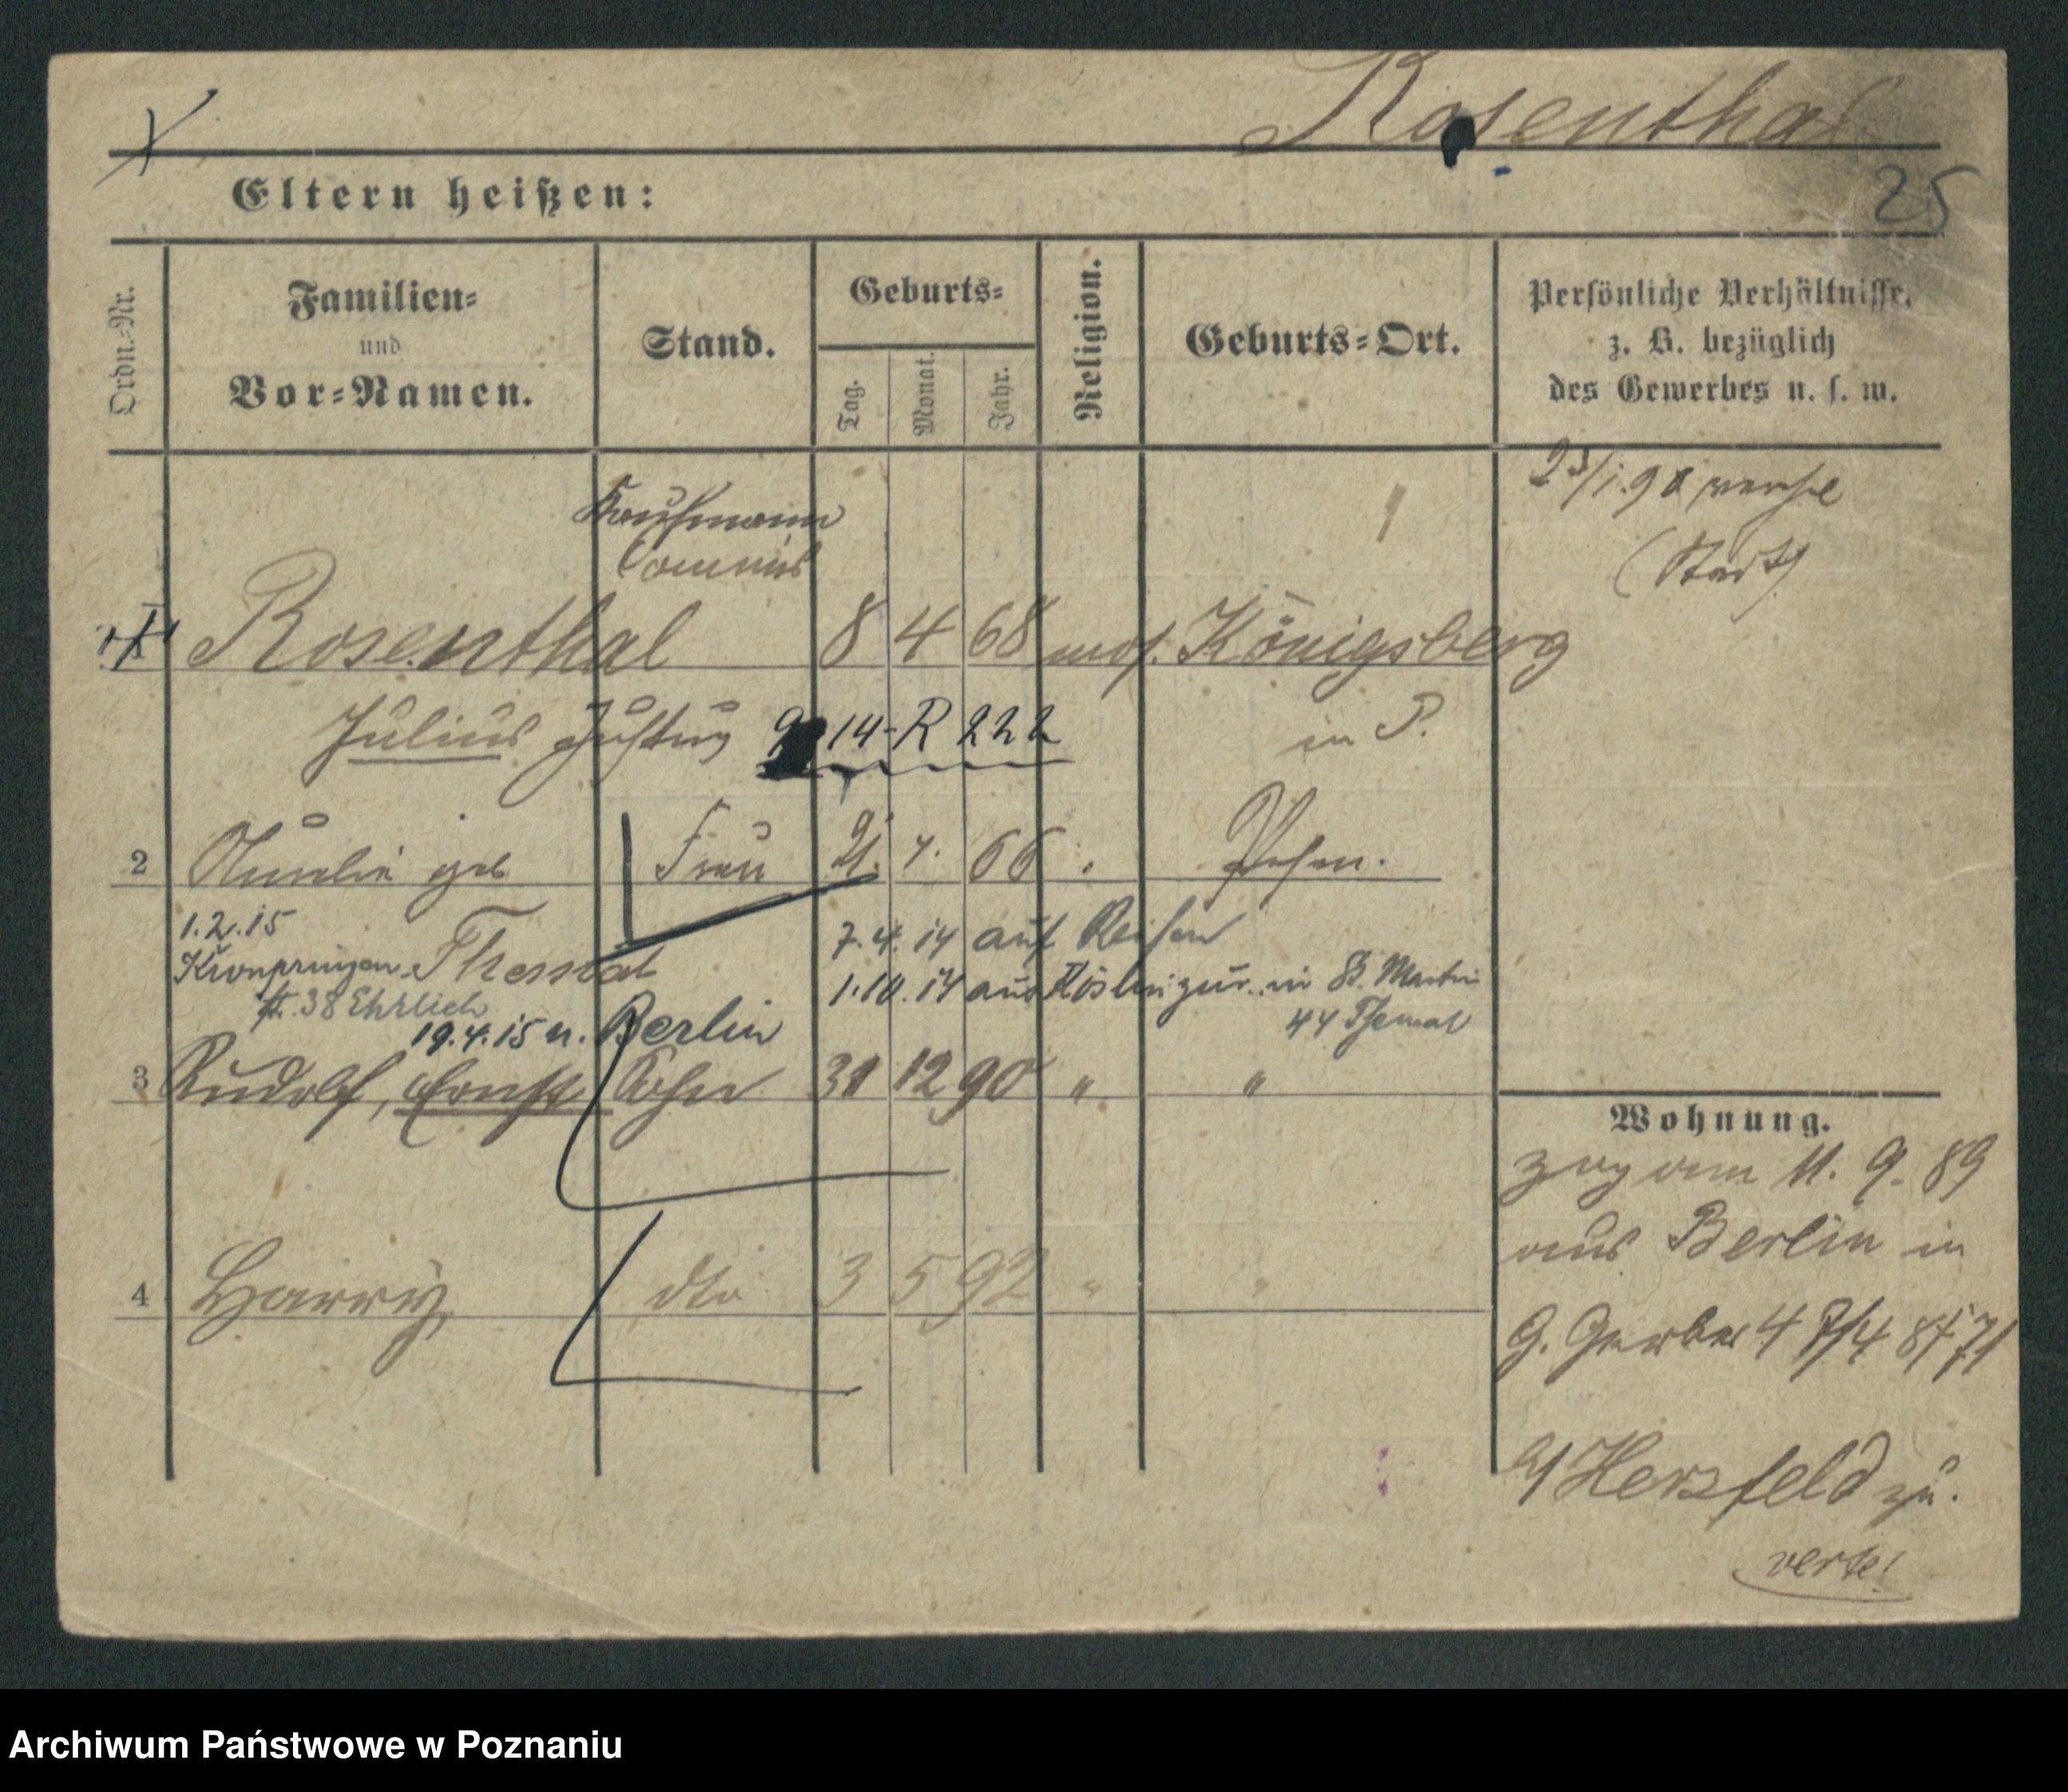 Rosenthal
25
Eltern heißen:
Ordn.-Nr.
Familien-
und
Vor-Namen.
Stand.
Geburts-
Tag.
Monat.
Jahr.
Religion.
Geburts-Ort.
Persönliche Verhältnisse,
z. B. bezüglich
des Gewerbes u. s. w.
(Stadt)
Kaufmann
Commis
Rosenthal 8 4 68 mos. Königsberg
Julius Justus 14 - R 222 in P.
2 Amalie geb Frau 21. 4. 66 Posen.
1.2.15
Kronprinzen
38 Ehrlich
7.4.14 auf Reisen
1.10.14 aus Köslin zur. in St. Martin
44
19.4.15 n. Berlin
3 Rudolf, Ernst Sohn 31 12 90 " "
4 Harry dto 3 5 92 " "
Wohnung.
zog am 11. 9. 89
aus Berlin in
G. Gerber 4
Herzfeld zu.
verte!
Archiwum Państwowe w Poznaniu